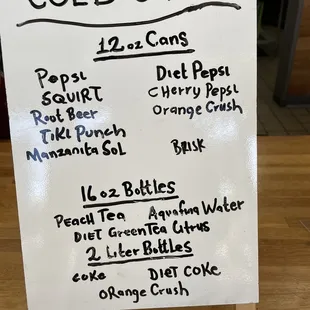 12 oz Cans
Pepsi Diet Pepsi
SQUIRT Cherry Pepsi
Root Beer Orange Crush
Tiki Punch
Manzanita Sol Brisk
16 oz Bottles
Peach Tea Aquafina Water
DIET Green Tea Citrus
2 Liter Bottles
coke DIET COKE
ORange Crush